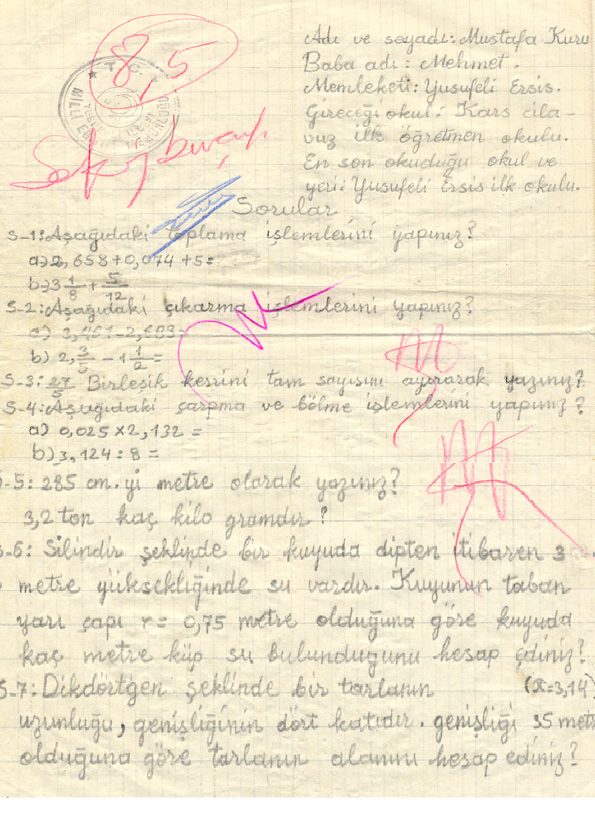 8,5
T.C.
Adı ve soyadı: Mustafa Kuru
Baba adı: Mehmet.
Memleketi: Yusufeli Ersis.
Gireceği okul: Kars cıla-
vuz ilk öğretmen okulu.
En son okuduğu okul ve
yeri: Yusufeli Ersis ilk okulu.
Sorular
S-1: Aşağıdaki toplama işlemlerini yapınız?
a) 2,658+0,074+5=
b) 3 1/8 + 5/12
S-2: Aşağıdaki çıkarma işlemlerini yapınız?
b) 2, 3/5 - 1 1/2 =
S-3: 27/5 Birleşik kesrini tam sayısını ayırarak yazınız?
S-4: Aşağıdaki çarpma ve bölme işlemlerini yapınız?
a) 0,025x2,132=
b) 3,124:8=
S-5: 285 cm.yi metre olarak yazınız?
3,2 ton kaç kilo gramdır?
S-6: Silindir şeklinde bir kuyuda dipten itibaren 3
metre yüksekliğinde su vardır. Kuyunun taban
yarı çapı r = 0,75 metre olduğuna göre kuyuda
kaç metre küp su bulunduğunu hesap ediniz?
(π=3,14)
S-7: Dikdörtgen şeklinde bir tarlanın
uzunluğu, genişliğinin dört katıdır. genişliği 35 metre
olduğuna göre tarlanın alanını hesap ediniz?